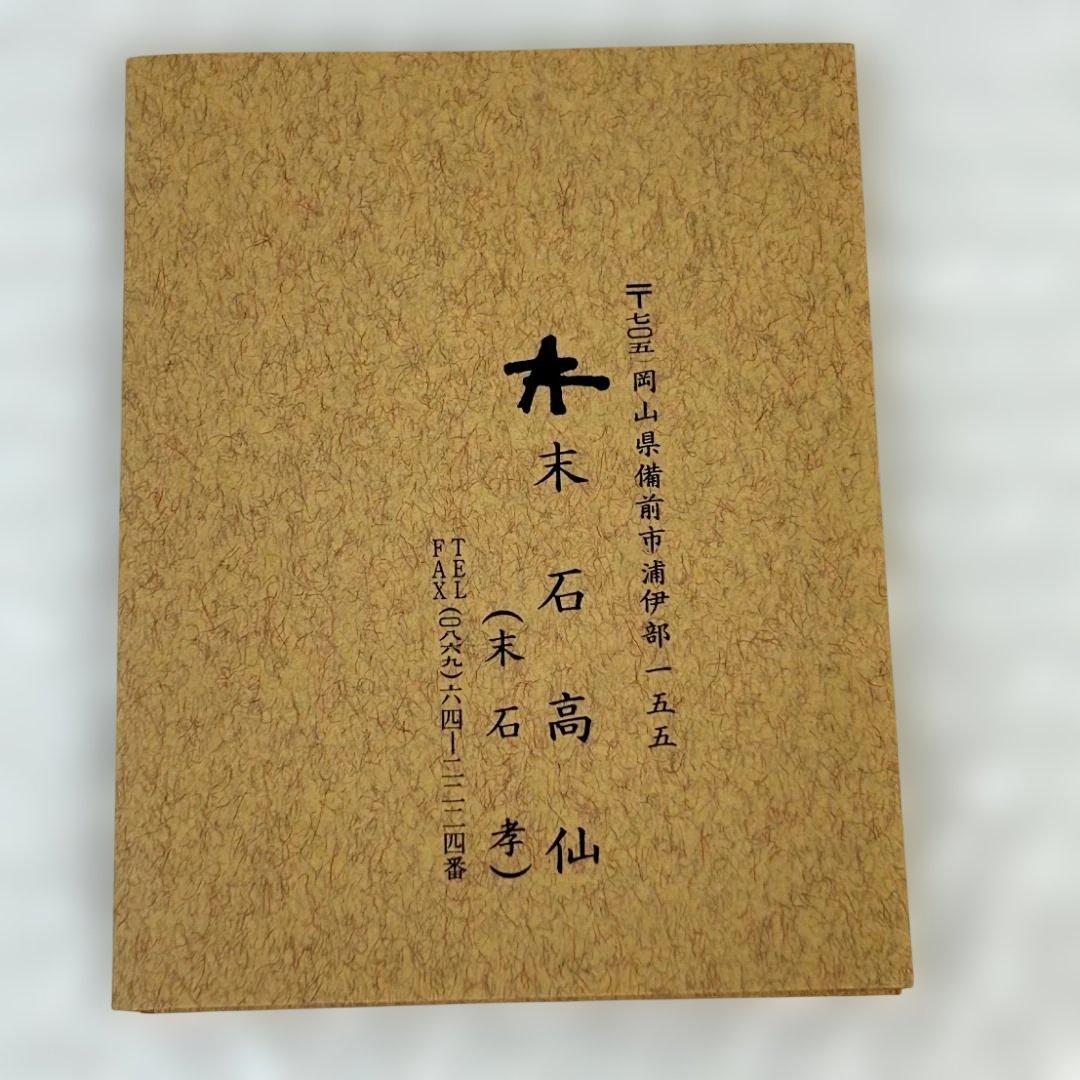 〒七〇五 岡山県備前市浦伊部一五五
末石高仙
(末石 孝)
TEL
FAX
(〇八六九)六四ー二二二四番